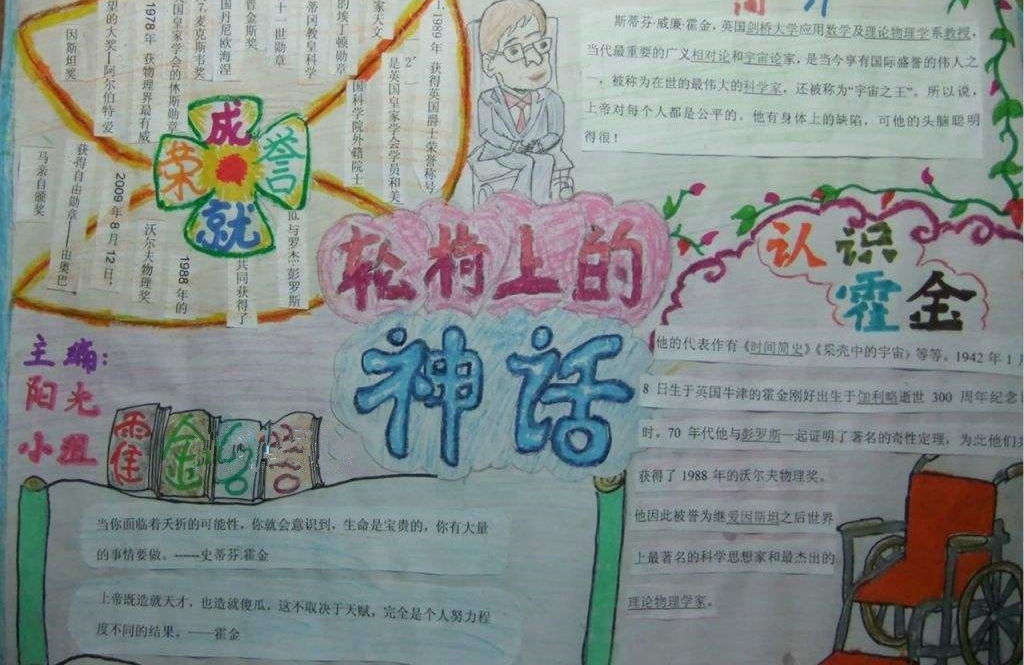 简介
斯蒂芬·威廉·霍金，英国剑桥大学应用数学及理论物理学系教授，
当代最重要的广义相对论和宇宙论家，是当今享有国际盛誉的伟人之
一，被称为在世的最伟大的科学家，还被称为“宇宙之王”。所以说，
上帝对每个人都是公平的。他有身体上的缺陷，可他的头脑聪明
得很！
成
荣 誉
就
1. 1989 年 获得英国爵士荣誉称号
2'
是英国皇家学会学员和美
国科学院外籍院士
因斯坦奖
望的大奖—阿尔伯特·爱
1978 年 获物理界最有威
国皇家学会的休斯勋章
7.麦克斯韦奖
国丹尼欧海涅
普金斯奖
十一世勋章
蒂冈教皇科学
的埃丁顿勋章
家天文
马亲自颁奖
获得自由勋章——由奥巴
2009 年 8 月 12 日，
沃尔夫物理奖
1988 年的
共同获得了
10.与罗杰·彭罗斯
轮椅上的
神话
主编：
阳光
小组
霍金名言
当你面临着夭折的可能性，你就会意识到，生命是宝贵的，你有大量
的事情要做。——史蒂芬.霍金
上帝既造就天才，也造就傻瓜，这不取决于天赋，完全是个人努力程
度不同的结果。——霍金
认识
霍金
他的代表作有《时间简史》《果壳中的宇宙》等等。1942 年 1 月
8 日生于英国牛津的霍金刚好出生于伽利略逝世 300 周年纪念
时。70 年代他与彭罗斯一起证明了著名的奇性定理，为此他们
获得了 1988 年的沃尔夫物理奖。
他因此被誉为继爱因斯坦之后世界
上最著名的科学思想家和最杰出的
理论物理学家。